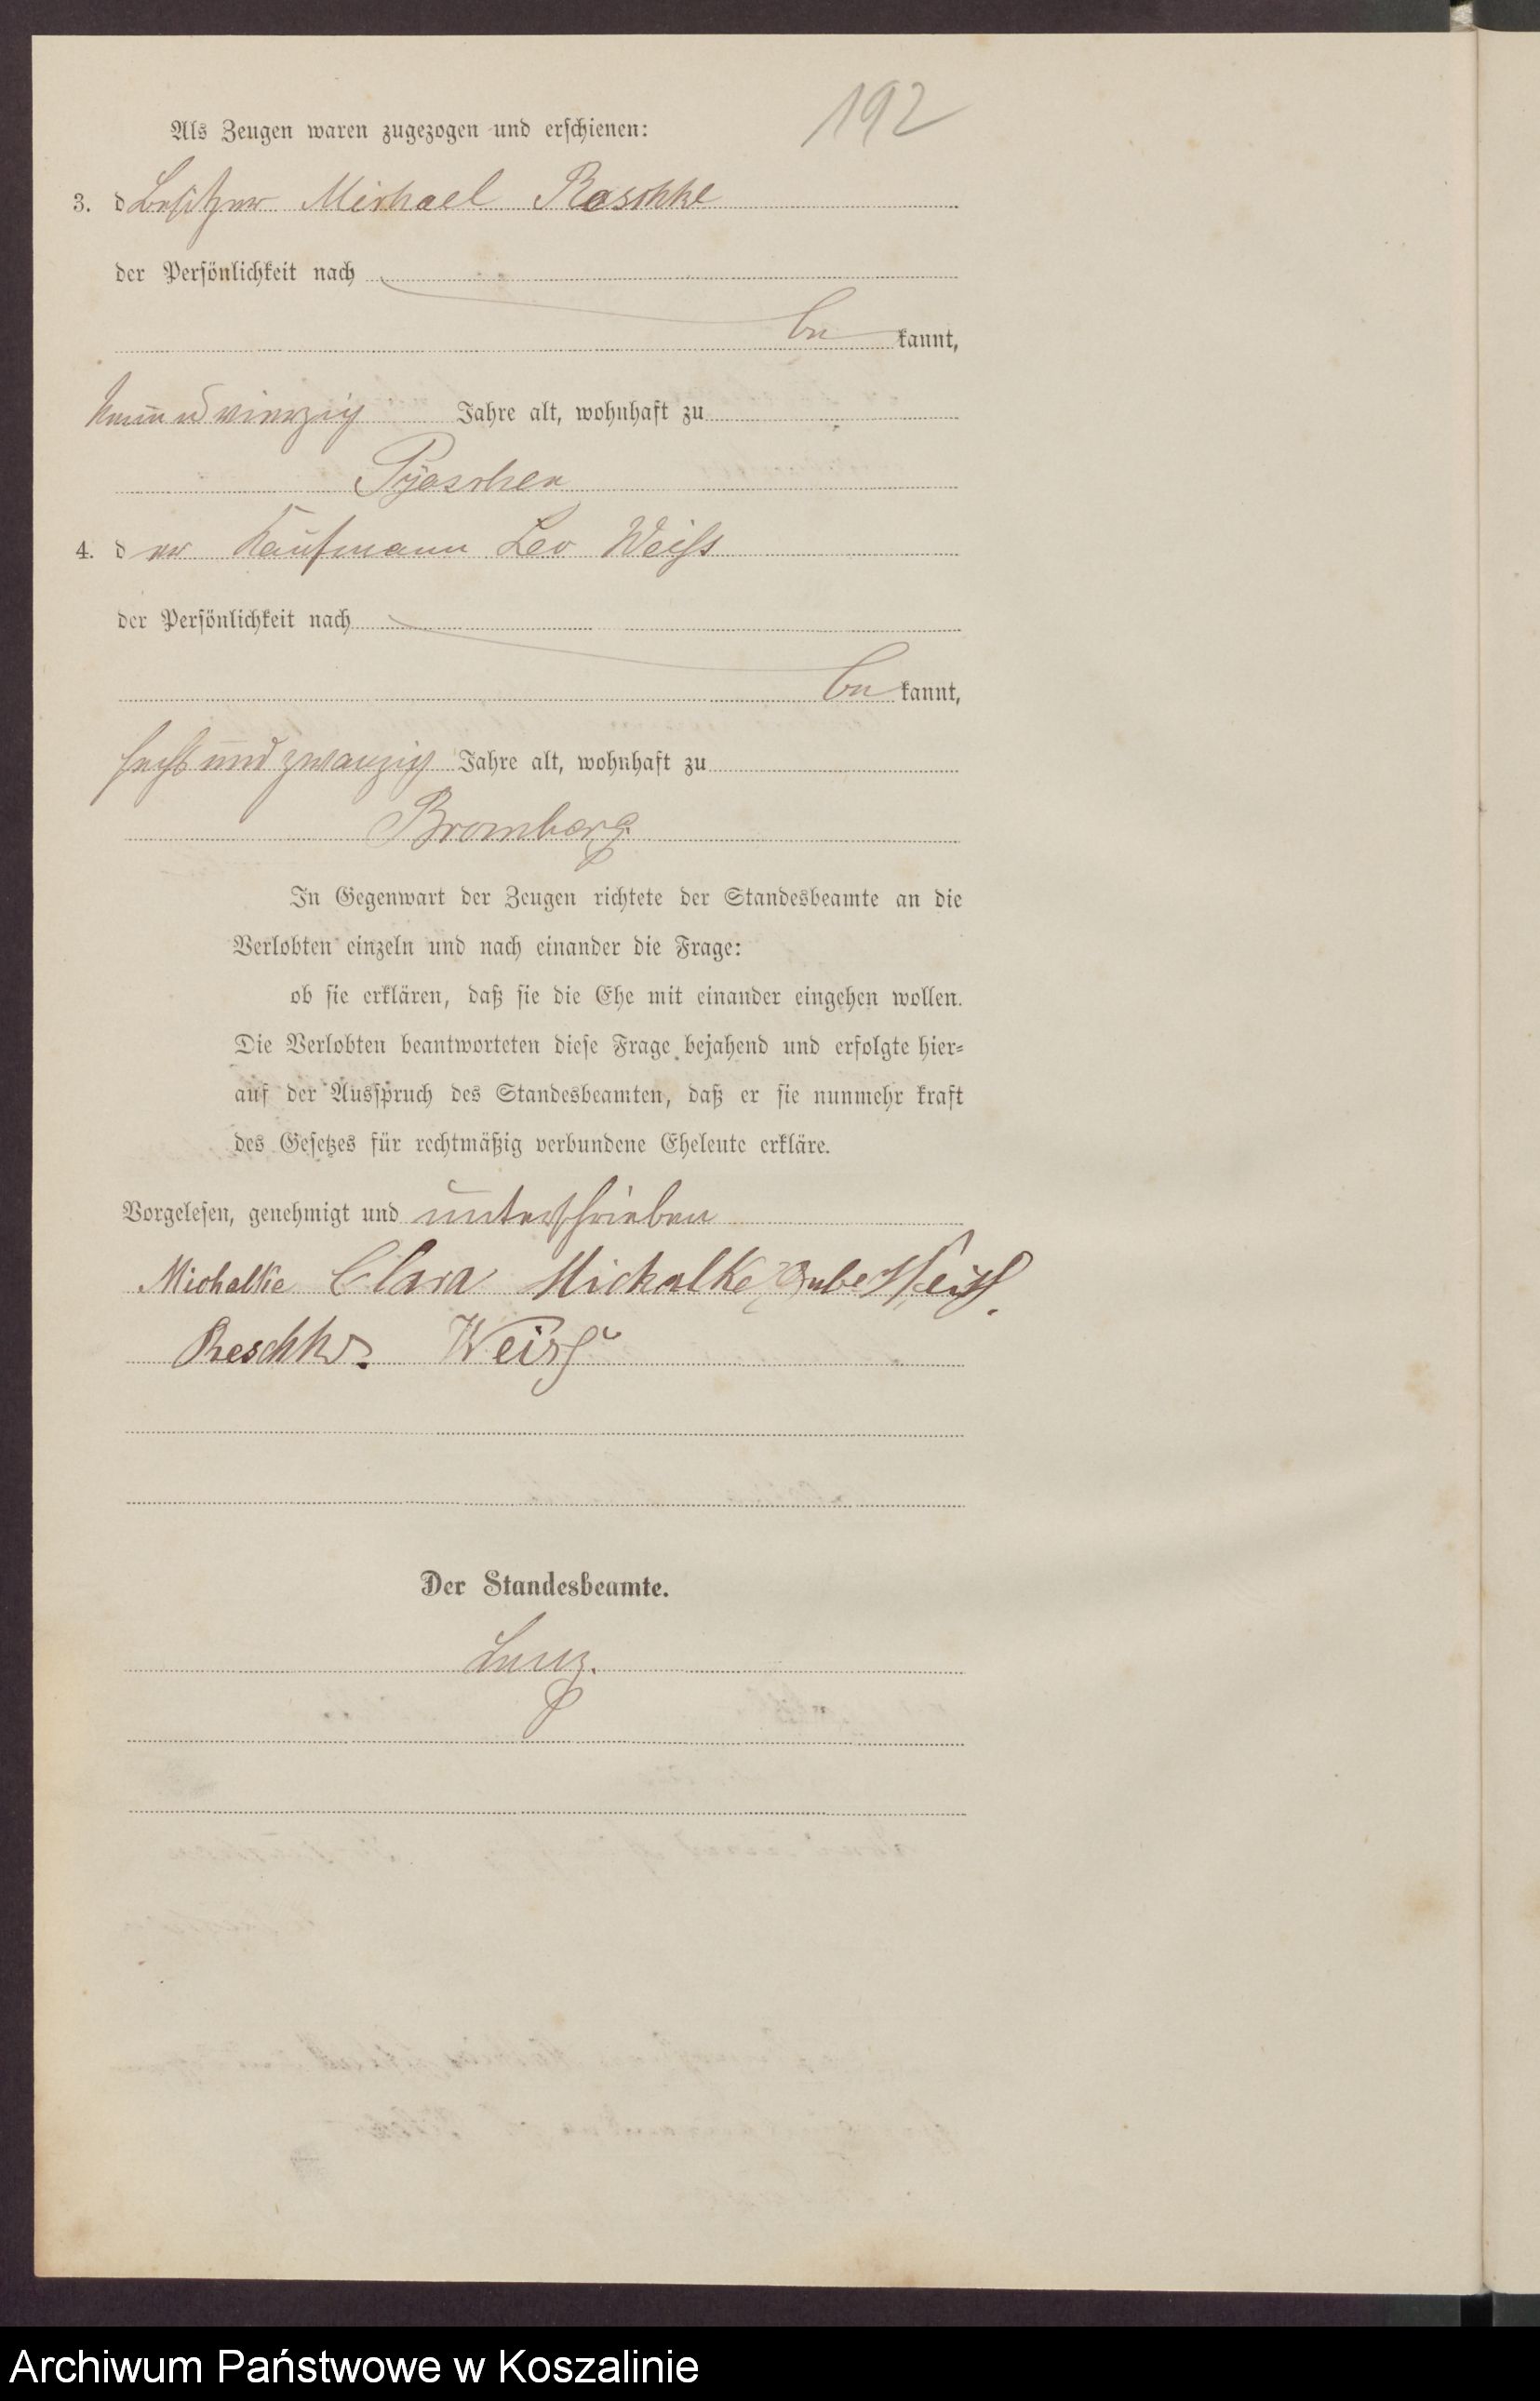 192
Als Zeugen waren zugezogen und erschienen:
3. d Besitzer Michael Raschke
der Persönlichkeit nach
be kannt,
neunundvierzig Jahre alt, wohnhaft zu
Pyaschen
4. d er Kaufmann Leo Weiß
der Persönlichkeit nach
be kannt,
sechsundzwanzig Jahre alt, wohnhaft zu
Bromberg.
In Gegenwart der Zeugen richtete der Standesbeamte an die
Verlobten einzeln und nach einander die Frage:
ob sie erklären, daß sie die Ehe mit einander eingehen wollen.
Die Verlobten beantworteten diese Frage bejahend und erfolgte hier-
auf der Ausspruch des Standesbeamten, daß er sie nunmehr kraft
des Gesetzes für rechtmäßig verbundene Eheleute erkläre.
Vorgelesen, genehmigt und unterschrieben
Michalke Clara Michalke
Reschke. Weiß
Der Standesbeamte.
Archiwum Państwowe w Koszalinie